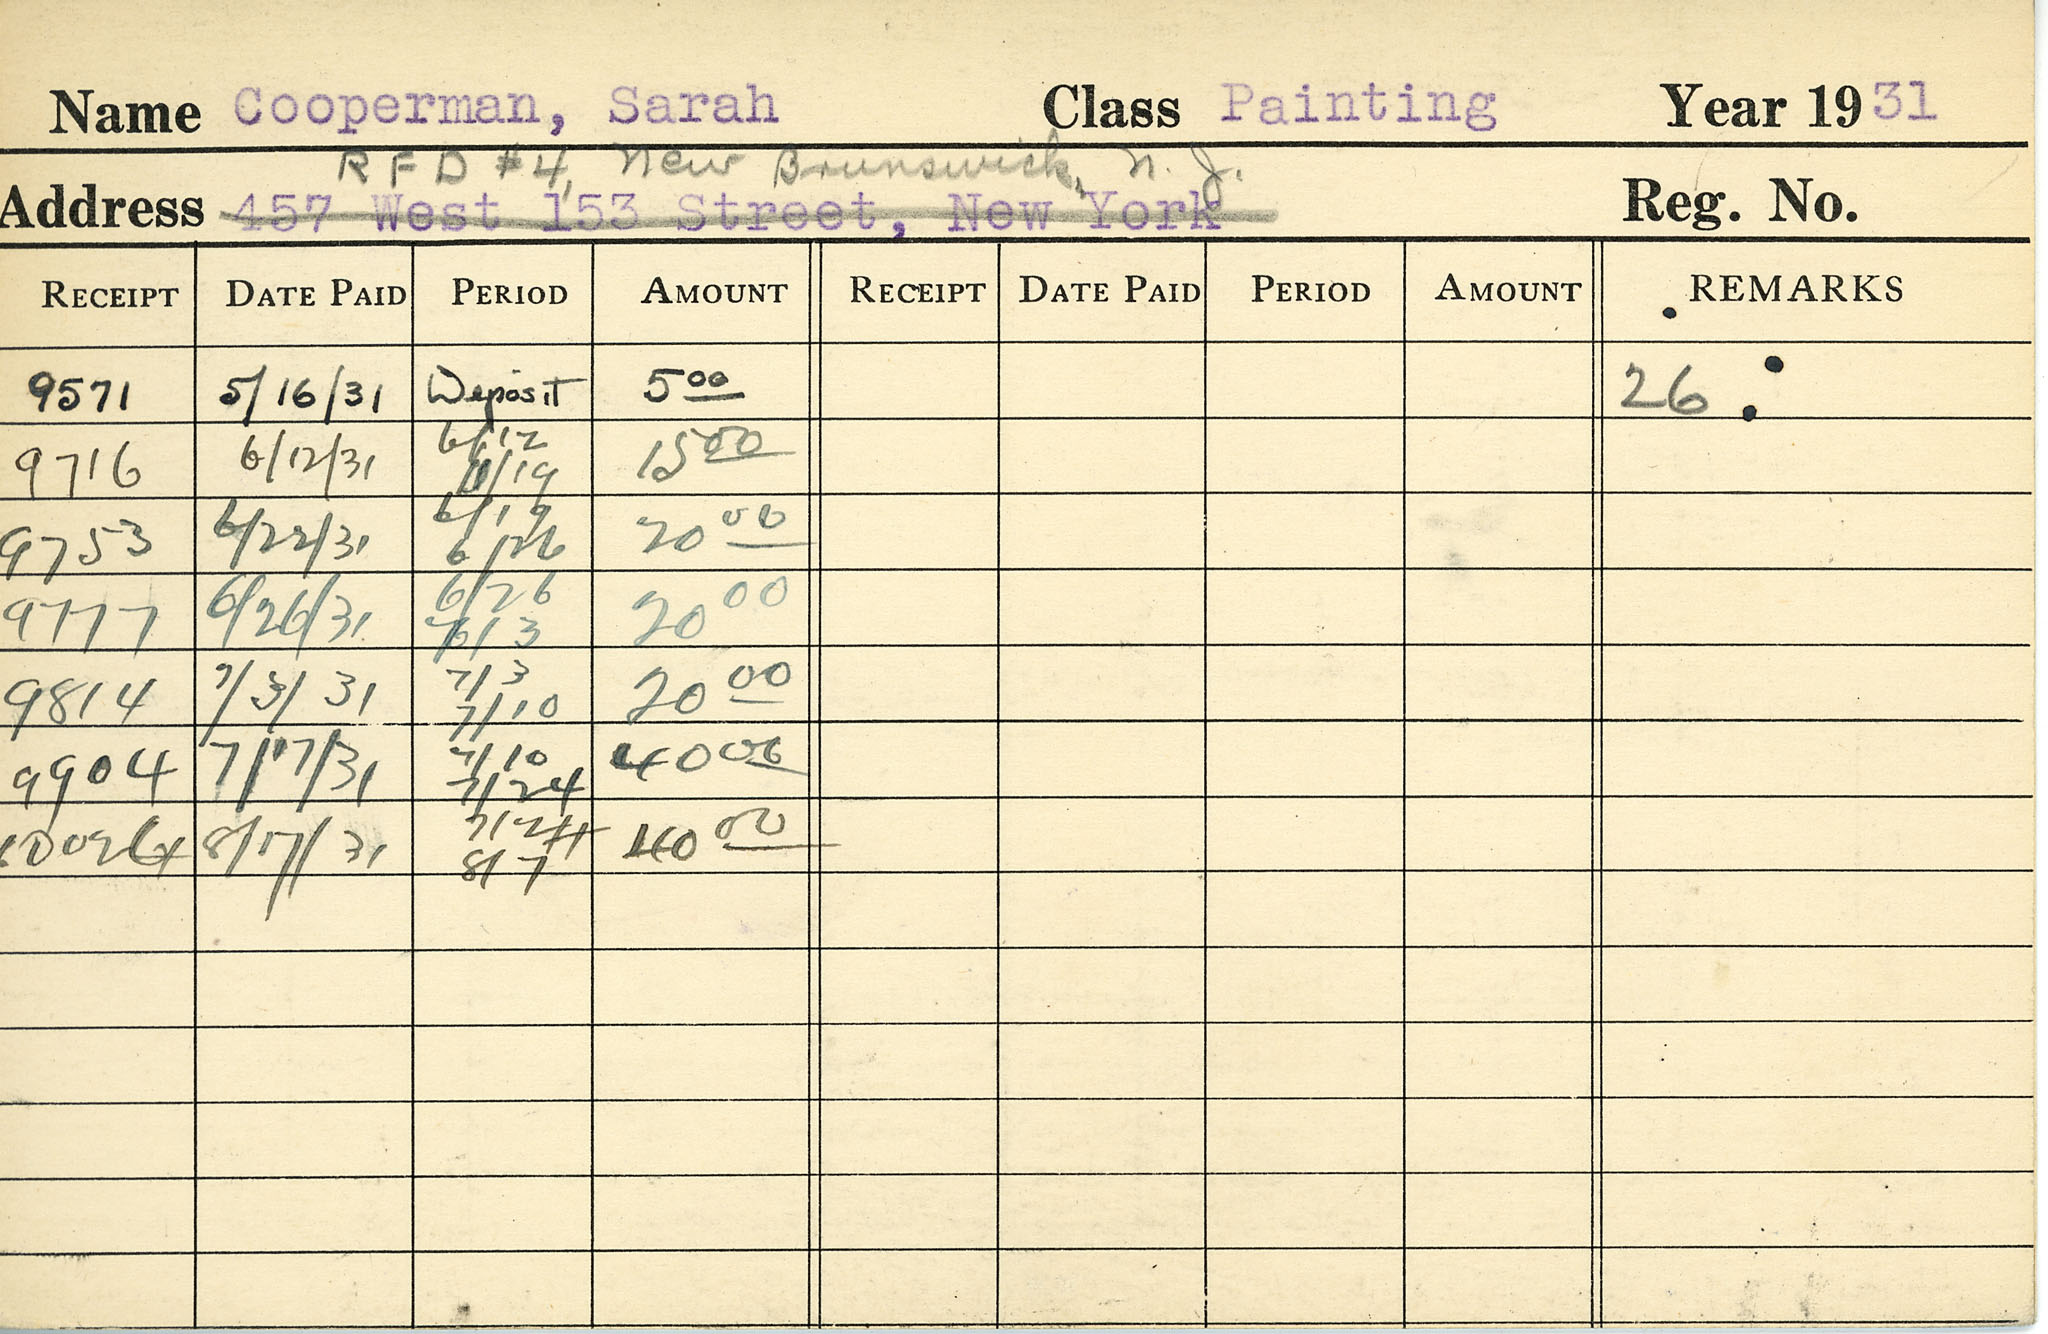 Name Cooperman, Sarah Class Painting Year 1931
RFD #4, New Brunswick, N. J.
Address 457 West 153 Street, New York Reg. No.
RECEIPT DATE PAID PERIOD AMOUNT RECEIPT DATE PAID PERIOD AMOUNT REMARKS
9571 5/16/31 Deposit 5 00 26
6/12
9716 6/12/31 /19 15 00
6/19
9753 6/22/31 6/26 20 00
6/26
9777 6/26/31 7/3 20 00
7/3
9814 7/3/31 7/10 20 00
7/10
9904 7/17/31 7/24 40 00
7/24
8/17/31 8/7 40 00